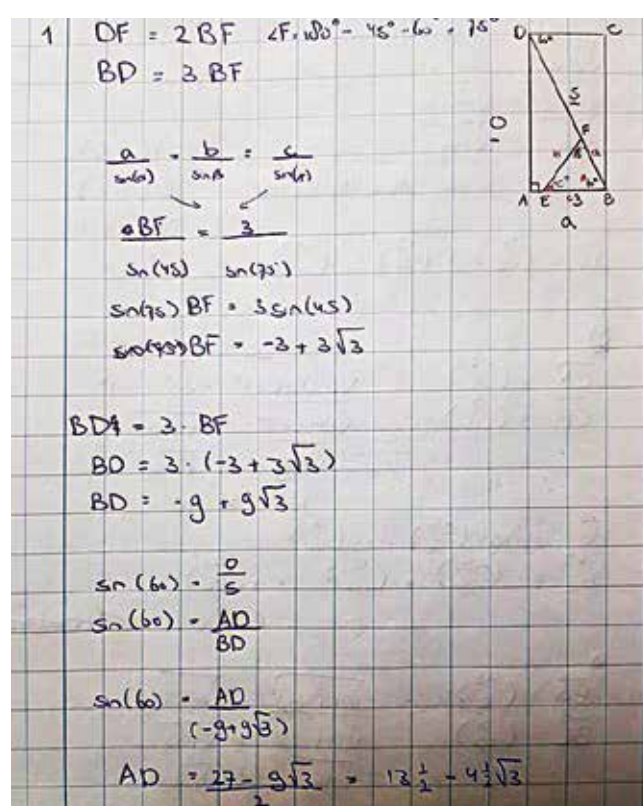 1 DF = 2BF ∠F = 180° - 45° - 60° = 75°
BD = 3 BF
a/sin(α) = b/sinβ = c/sin(γ)
BF/sin(45) = 3/sin(75)
sin(75) BF = 3 sin(45)
BF = -3 + 3√3
BD = 3 · BF
BD = 3 · (-3 + 3√3)
BD = -9 + 9√3
sin(60) = O/S
sin(60) = AD/BD
sin(60) = AD/(-9+9√3)
AD = 27 - 9√3/2 = 13½ - 4½√3
D 60° C
S
O
F
A E 3 B
a